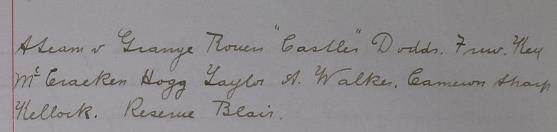 A team v Grange Rovers "Castle" Dodds. Frew. Key
Mc Cracken Hogg Taylor A. Walker. Cameron Sharp
Kellock. Reserve Blair.